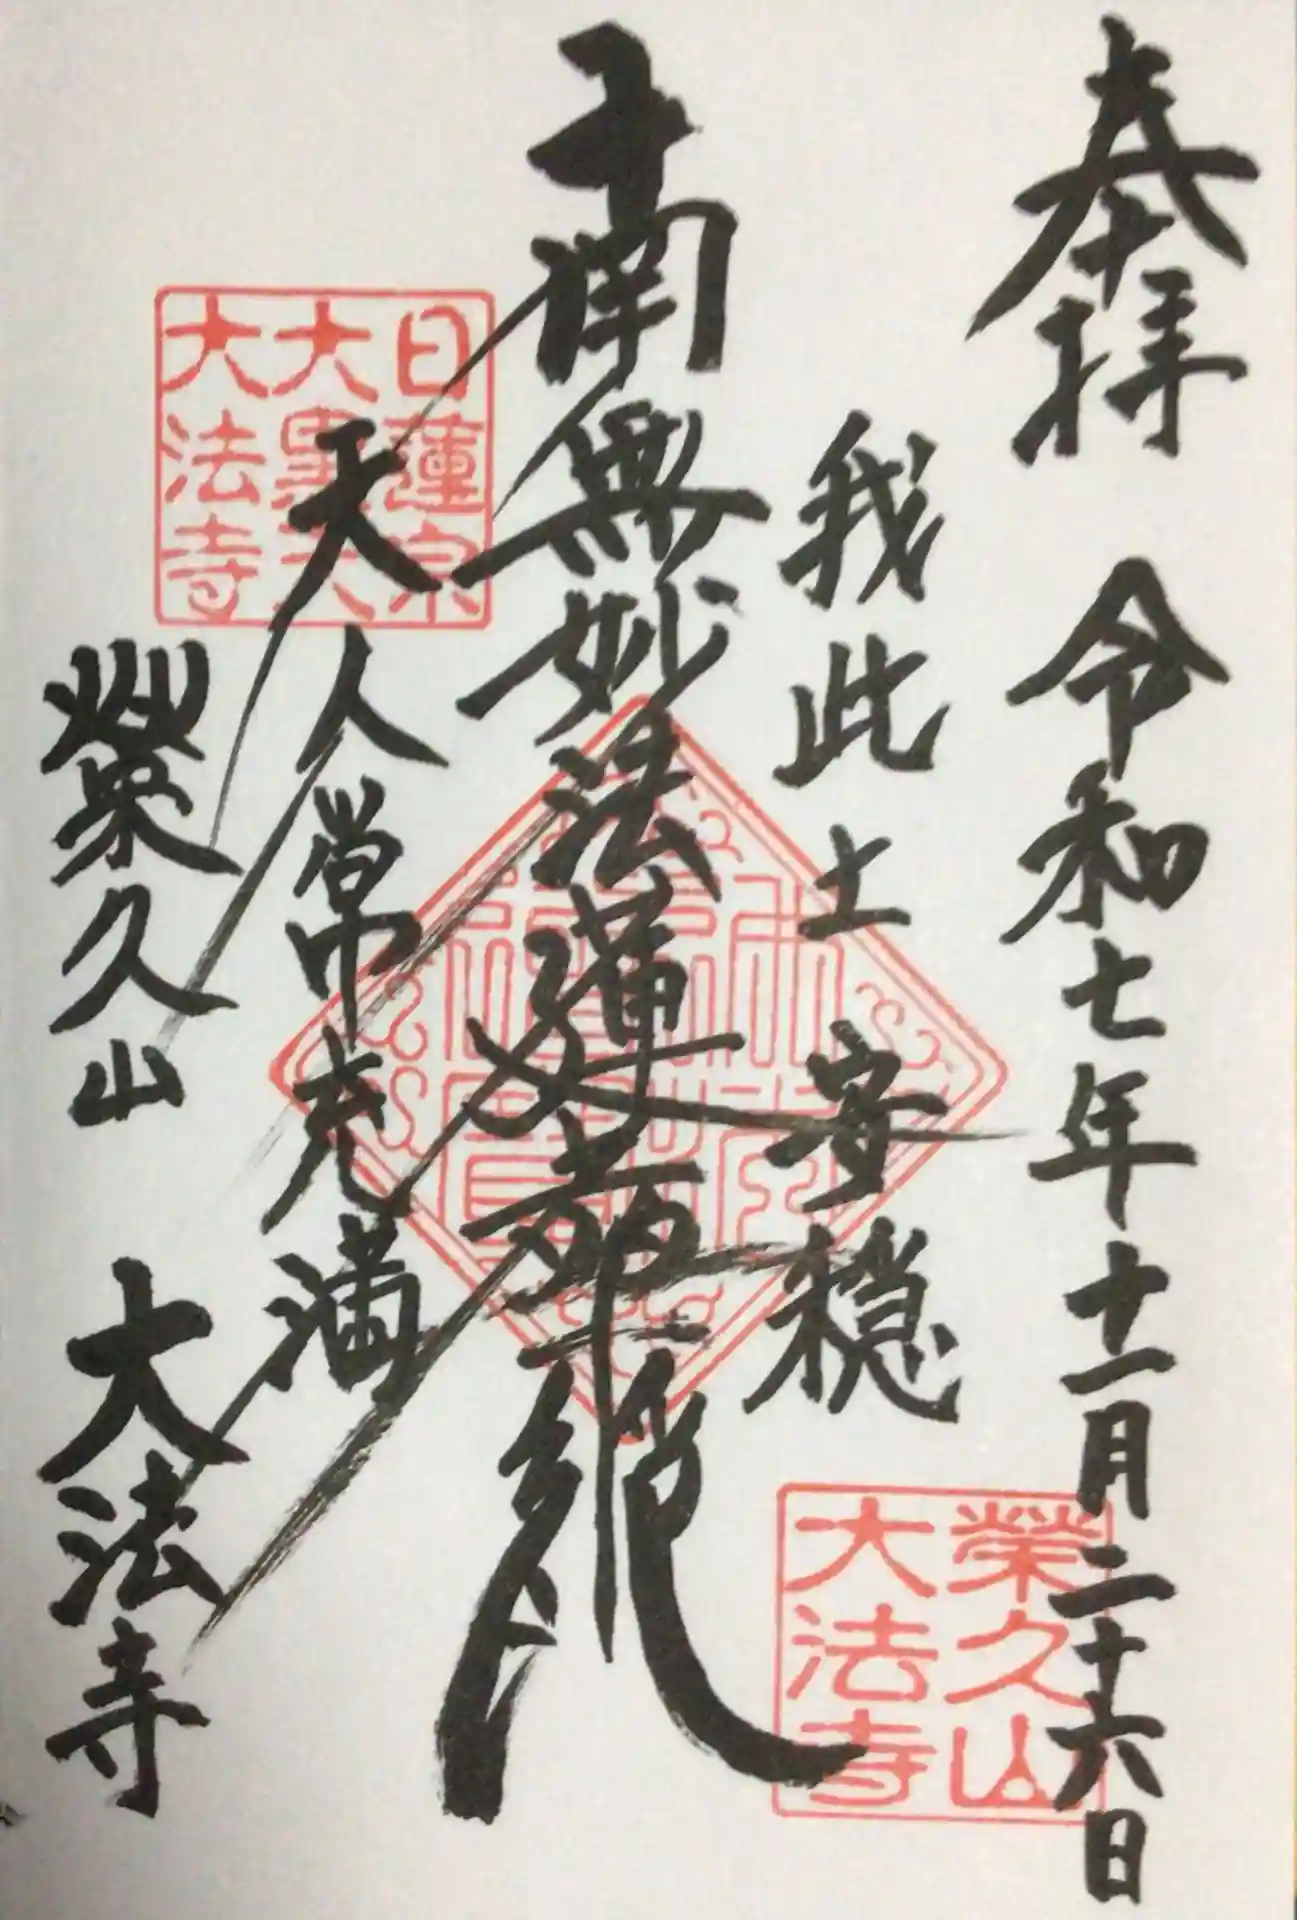 奉拝　令和七年十一月二十六日
我此土安穏
南無妙法蓮華経
天人常充満
榮久山　大法寺
日蓮宗
大黒天
大法寺
榮久山
大法寺